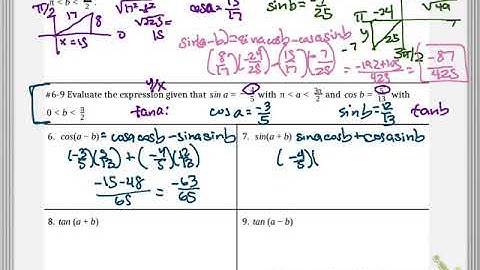 π/2
< b <
17
8
x=15
√17²-8²
√225
15
0
cos a = 15/17
sin b = -7/25
π -24
-7
25
3π/2
√49
sin(a-b) = sin a cos b - cos a sin b
(8/17)(-24/25) - (15/17)(-7/25)
-192+105/425
-87/425
y/x
#6-9 Evaluate the expression given that sin a = /5 with π < a < 3π/2 and cos b = /13 with
0 < b < π/2
tan a:
cos a = -3/5
sin b = 12/13
tan b
6. cos(a − b) = cos a cos b - sin a sin b
(-3/5)(5/13) + (-4/5)(12/13)
-15-48/65 = -63/65
7. sin(a + b) sin a cos b + cos a sin b
(-4/5)(
8. tan (a + b)
9. tan (a − b)